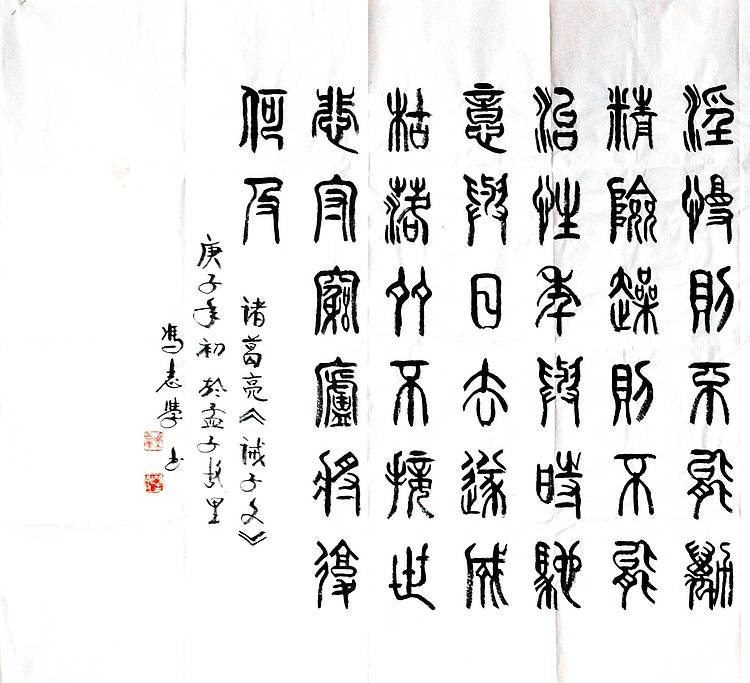 淫慢則不能勵
精險躁則不能
治性年與時馳
意與日去遂成
枯落多不接世
悲守窮廬將復
何及
诸葛亮《诫子文》
庚子年初於孟子故里
馮志學书